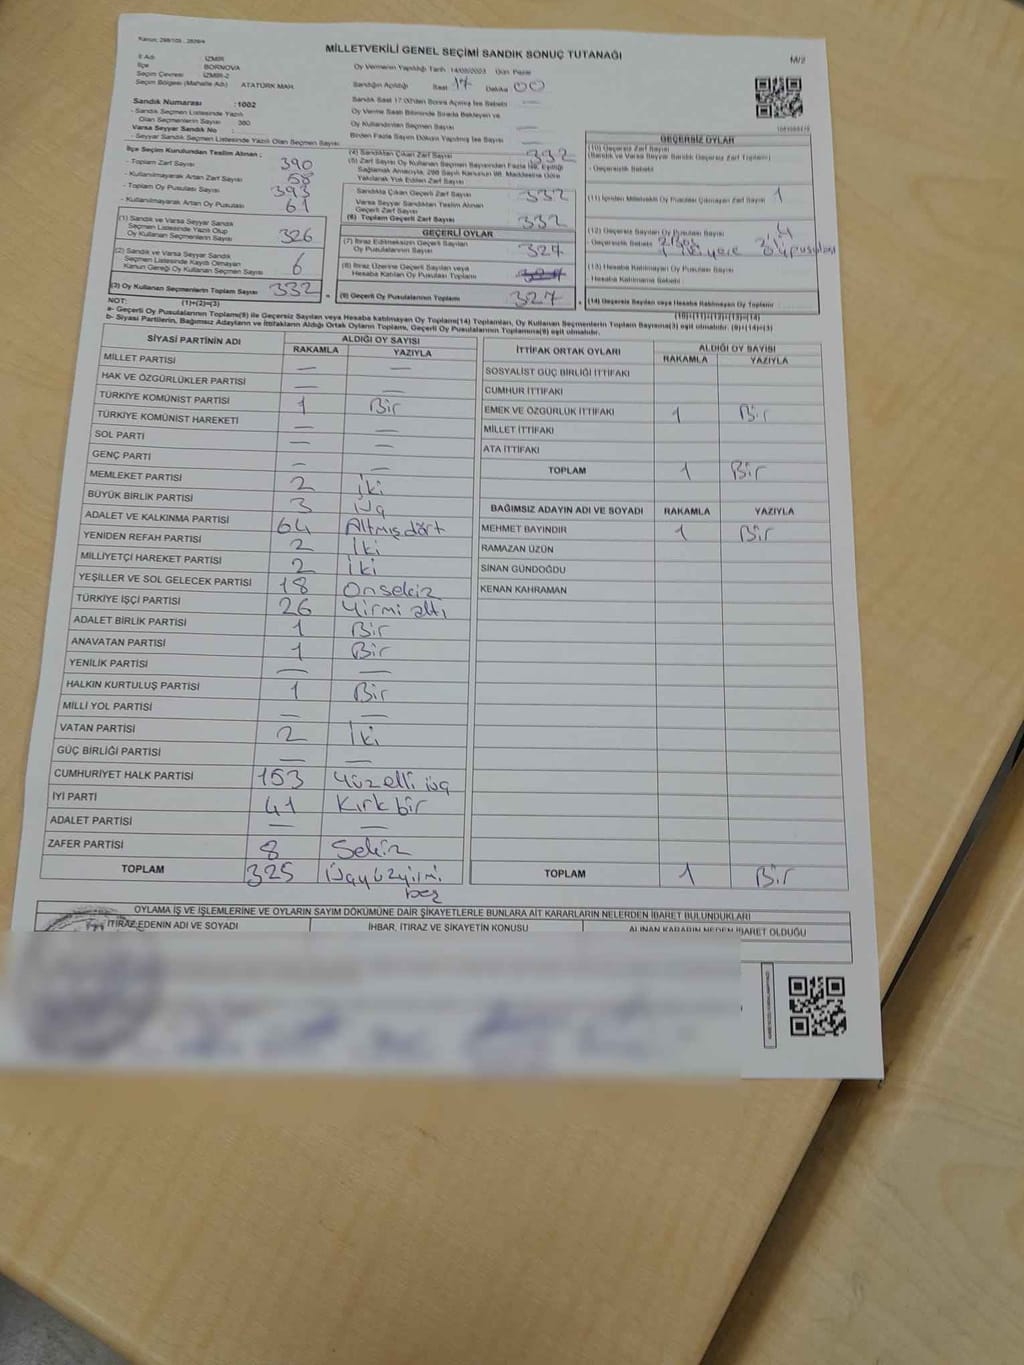 MİLLETVEKİLİ GENEL SEÇİMİ SANDIK SONUÇ TUTANAĞI
M/2
İl Adı : İZMİR
İlçe : BORNOVA
Seçim Çevresi : İZMİR-2
Seçim Bölgesi (Mahalle Adı) : ATATÜRK MAH.
Oy Vermenin Yapıldığı Tarih 14/05/2023 Gün Pazar
Sandığın Açıldığı Saat 17 Dakika 00
Sandık Saat 17.00'den Sonra Açılmış İse Sebebi —
Oy Verme Saati Bitiminde Sırada Bekleyen ve
Oy Kullandırılan Seçmen Sayısı —
Birden Fazla Sayım Döküm Yapılmış İse Sayısı —
Sandık Numarası : 1002
- Sandık Seçmen Listesinde Yazılı
Olan Seçmenlerin Sayısı : 380
Varsa Seyyar Sandık No :
- Seyyar Sandık Seçmen Listesinde Yazılı Olan Seçmen Sayısı :
İlçe Seçim Kurulundan Teslim Alınan ;
- Toplam Zarf Sayısı 390
- Kullanılmayarak Artan Zarf Sayısı 58
- Toplam Oy Pusulası Sayısı 393
- Kullanılmayarak Artan Oy Pusulası 61
(1) Sandık ve Varsa Seyyar Sandık
Seçmen Listesinde Yazılı Olup
Oy Kullanan Seçmenlerin Sayısı 326
(2) Sandık ve Varsa Seyyar Sandık
Seçmen Listesinde Kayıtlı Olmayan
Kanun Gereği Oy Kullanan Seçmen Sayısı 6
(3) Oy Kullanan Seçmenlerin Toplam Sayısı 332
(1)+(2)=(3)
(4) Sandıktan Çıkan Zarf Sayısı 332
(5) Zarf Sayısı Oy Kullanan Seçmen Sayısından Fazla İse, Eşitliği
Sağlamak Amacıyla, 298 Sayılı Kanunun 98. Maddesine Göre
Yakılarak Yok Edilen Zarf Sayısı —
Sandıkta Çıkan Geçerli Zarf Sayısı 332
Varsa Seyyar Sandıktan Teslim Alınan
Geçerli Zarf Sayısı —
(6) Toplam Geçerli Zarf Sayısı 332
GEÇERLİ OYLAR
(7) İtiraz Edilmeksizin Geçerli Sayılan
Oy Pusulalarının Sayısı 327
(8) İtiraz Üzerine Geçerli Sayılan veya
Hesaba Katılan Oy Pusulası Toplamı
(9) Geçerli Oy Pusulalarının Toplamı 327
GEÇERSİZ OYLAR
(10) Geçersiz Zarf Sayısı
(Sandık ve Varsa Seyyar Sandık Geçersiz Zarf Toplamı)
- Geçersizlik Sebebi
(11) İçinden Milletvekili Oy Pusulası Çıkmayan Zarf Sayısı 1
(12) Geçersiz Sayılan Oy Pusulası Sayısı 4
- Geçersizlik Sebebi
(13) Hesaba Katılmayan Oy Pusulası Sayısı
- Hesaba Katılmama Sebebi
(14) Geçersiz Sayılan veya Hesaba Katılmayan Oy Pusulası Toplamı :
(10)+(11)+(12)+(13)=(14)
NOT:
a- Geçerli Oy Pusulalarının Toplamı(9) ile Geçersiz Sayılan veya Hesaba katılmayan Oy Toplamı(14) Toplamları, Oy Kullanan Seçmenlerin Toplam Sayısına(3) eşit olmalıdır. (9)+(14)=(3)
b- Siyasi Partilerin, Bağımsız Adayların ve İttifakların Aldığı Ortak Oyların Toplamı, Geçerli Oy Pusulalarının Toplamına(9) eşit olmalıdır.
SİYASİ PARTİNİN ADI ALDIĞI OY SAYISI
RAKAMLA YAZIYLA
MİLLET PARTİSİ — —
HAK VE ÖZGÜRLÜKLER PARTİSİ — —
TÜRKİYE KOMÜNİST PARTİSİ 1 Bir
TÜRKİYE KOMÜNİST HAREKETİ — —
SOL PARTİ — —
GENÇ PARTİ — —
MEMLEKET PARTİSİ 2 İki
BÜYÜK BİRLİK PARTİSİ 3 Üç
ADALET VE KALKINMA PARTİSİ 64 Altmış dört
YENİDEN REFAH PARTİSİ 2 İki
MİLLİYETÇİ HAREKET PARTİSİ 2 İki
YEŞİLLER VE SOL GELECEK PARTİSİ 18 Onsekiz
TÜRKİYE İŞÇİ PARTİSİ 26 Yirmi altı
ADALET BİRLİK PARTİSİ 1 Bir
ANAVATAN PARTİSİ 1 Bir
YENİLİK PARTİSİ — —
HALKIN KURTULUŞ PARTİSİ 1 Bir
MİLLİ YOL PARTİSİ — —
VATAN PARTİSİ 2 İki
GÜÇ BİRLİĞİ PARTİSİ — —
CUMHURİYET HALK PARTİSİ 153 Yüzelli üç
İYİ PARTİ 41 Kırk bir
ADALET PARTİSİ — —
ZAFER PARTİSİ 8 Sekiz
TOPLAM 325 Üçyüzyirmi
beş
İTTİFAK ORTAK OYLARI ALDIĞI OY SAYISI
RAKAMLA YAZIYLA
SOSYALİST GÜÇ BİRLİĞİ İTTİFAKI
CUMHUR İTTİFAKI
EMEK VE ÖZGÜRLÜK İTTİFAKI 1 Bir
MİLLET İTTİFAKI
ATA İTTİFAKI
TOPLAM 1 Bir
BAĞIMSIZ ADAYIN ADI VE SOYADI RAKAMLA YAZIYLA
MEHMET BAYINDIR 1 Bir
RAMAZAN ÜZÜN
SİNAN GÜNDOĞDU
KENAN KAHRAMAN
TOPLAM 1 Bir
OYLAMA İŞ VE İŞLEMLERİNE VE OYLARIN SAYIM DÖKÜMÜNE DAİR ŞİKAYETLERLE BUNLARA AİT KARARLARIN NELERDEN İBARET BULUNDUKLARI
İTİRAZ EDENİN ADI VE SOYADI İHBAR, İTİRAZ VE ŞİKAYETİN KONUSU ALINAN KARARIN NEDEN İBARET OLDUĞU